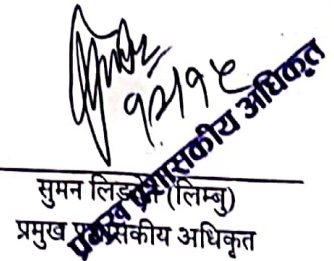 १२।१५
प्रमुख प्रशासकीय अधिकृत
सुमन लिङदेन (लिम्बु)
प्रमुख प्रशासकीय अधिकृत